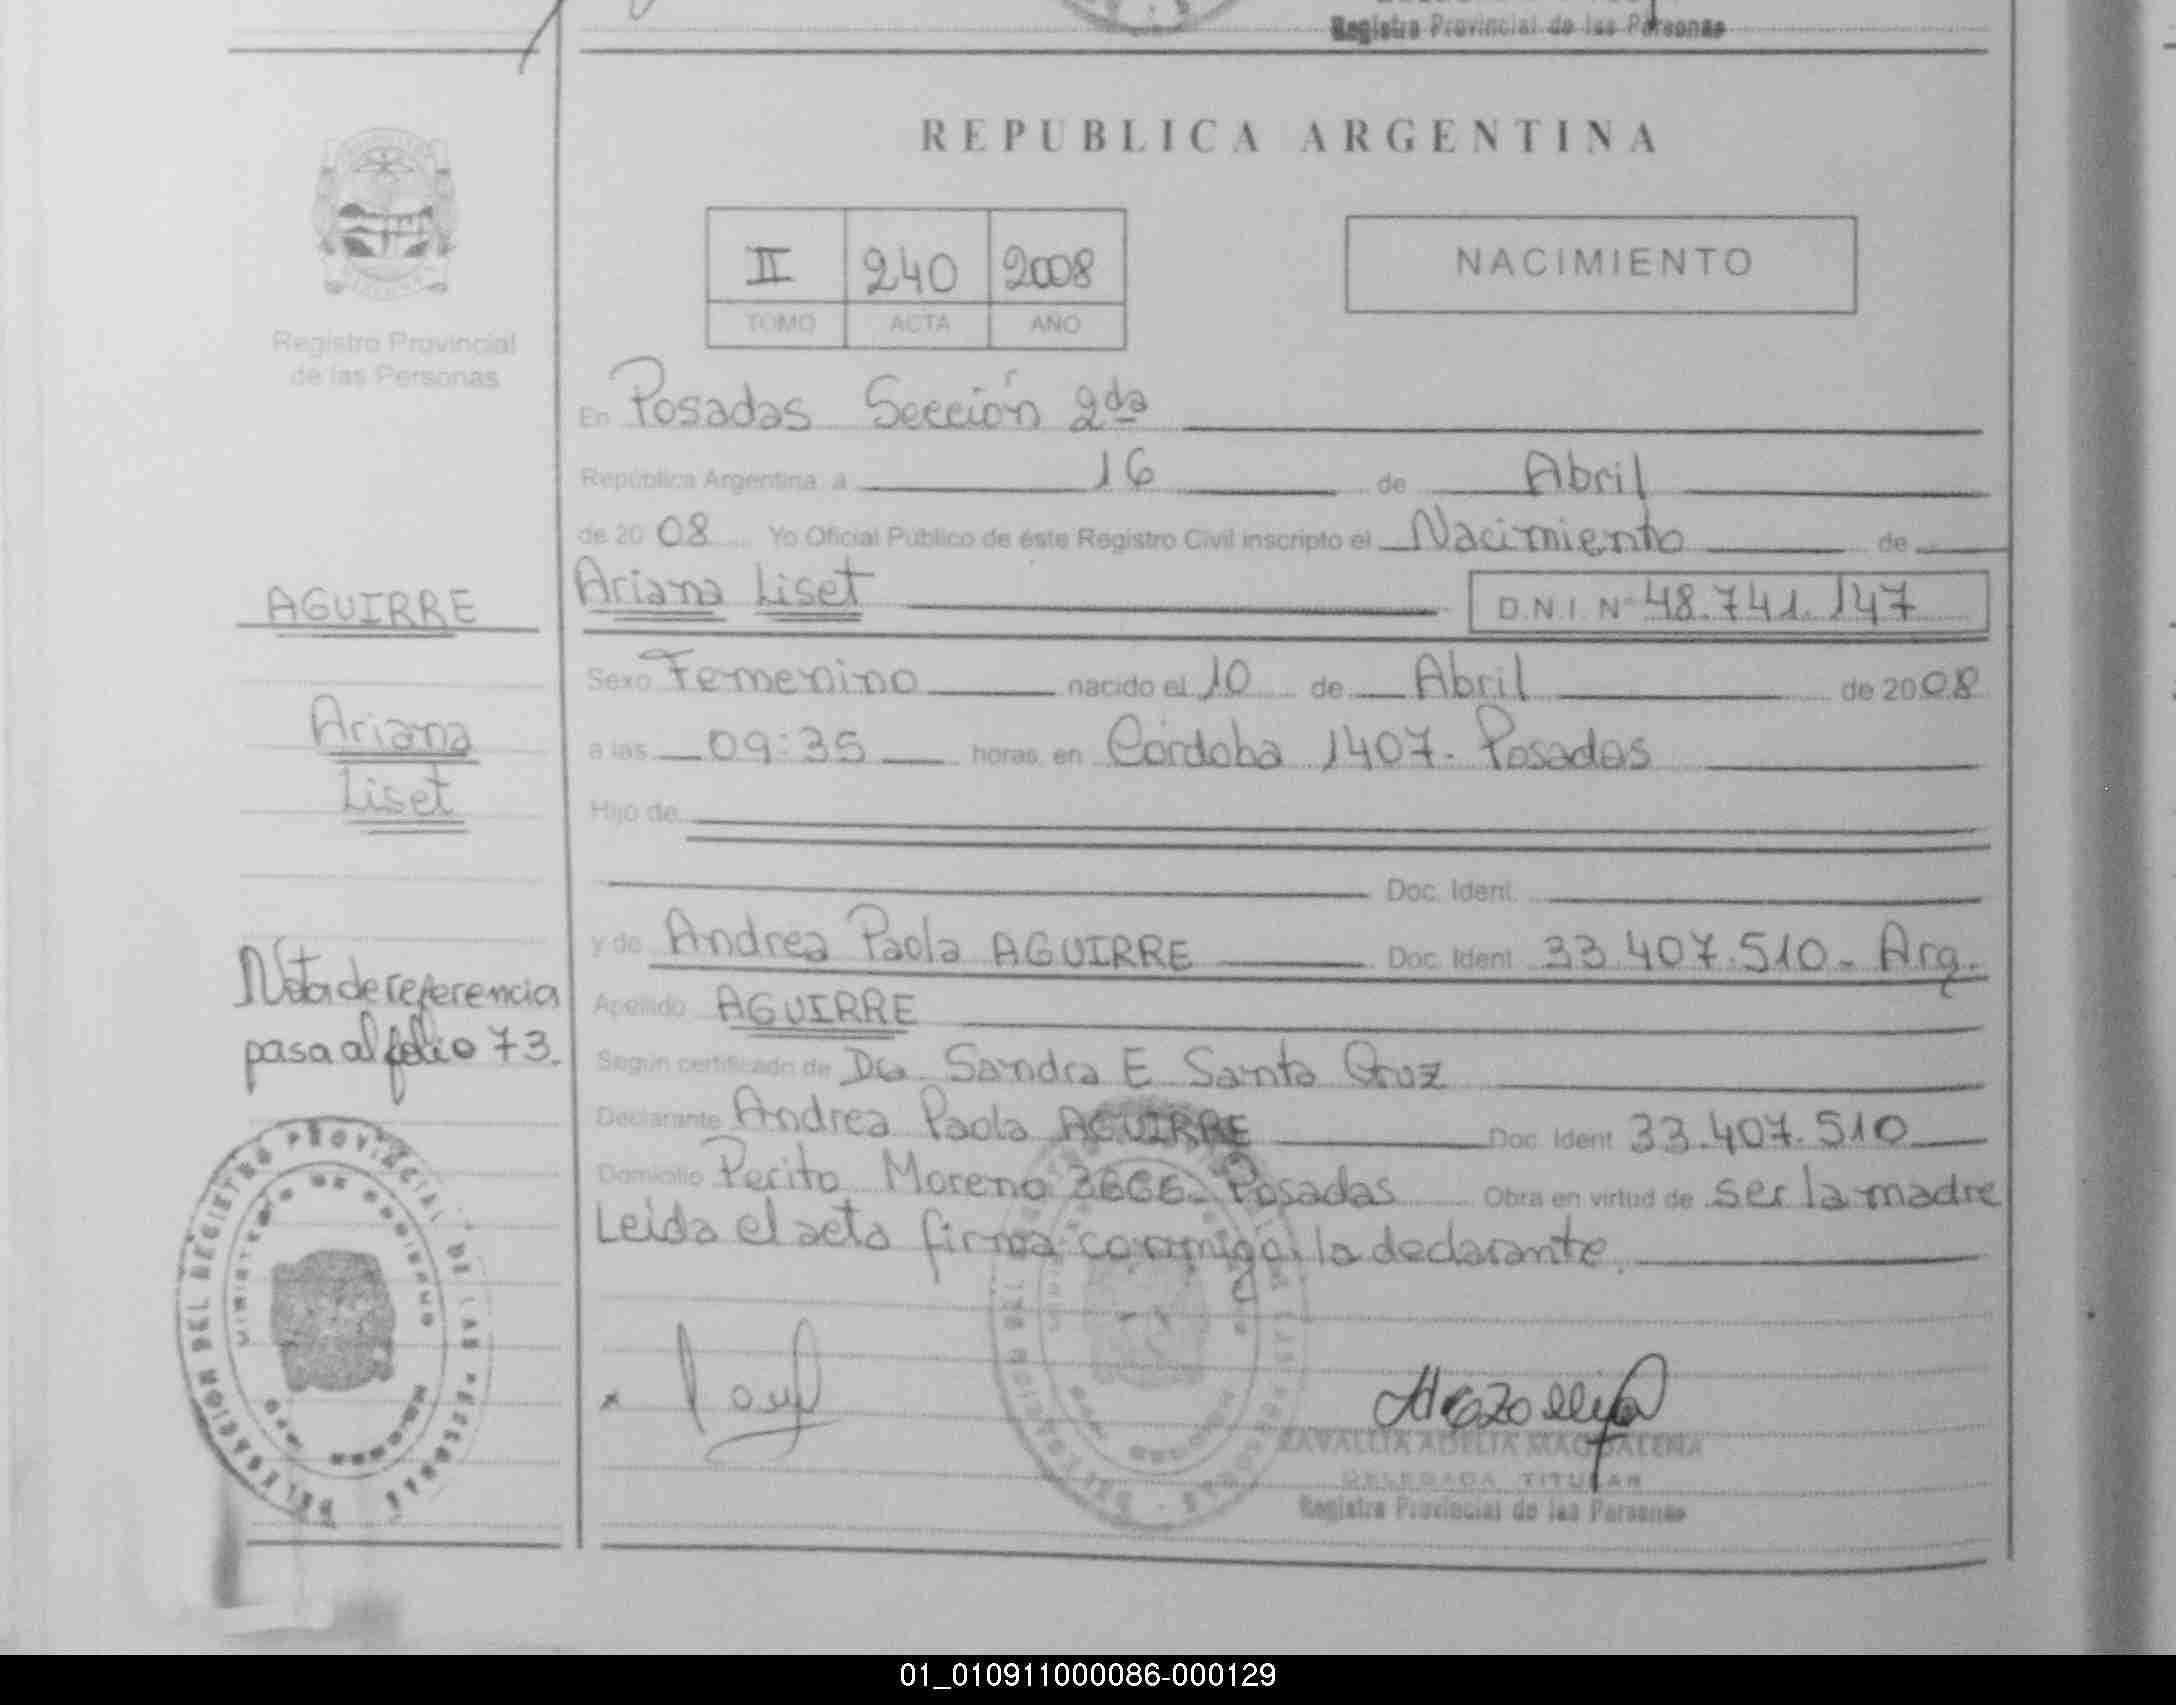 Registro Provincial de las Personas
REPUBLICA ARGENTINA
II 240 2008
TOMO ACTA AÑO
NACIMIENTO
Registro Provincial
de las Personas
En Posadas Sección 2da
República Argentina a 16 de Abril
de 2008 Yo Oficial Público de éste Registro Civil inscripto el Nacimiento de
AGUIRRE
Ariana Liset D.N.I. Nº 48.741.147
Sexo Femenino nacido el 10 de Abril de 2008
Ariana
Liset
a las 09:35 horas. en Córdoba 1407- Posadas
Hijo de
Doc. Ident.
y de Andrea Paola AGUIRRE Doc. Ident 33.407.510- Arg.
Nota de referencia
pasa al folio 73.
Apellido AGUIRRE
Según certificado de Dra. Sandra E. Santa Cruz
Declarante Andrea Paola AGUIRRE Doc. Ident 33.407.510
Domicilio Perito Moreno 3666- Posadas Obra en virtud de ser la madre
Leida el acta firma conmigo la declarante.
REGISTRO PROVINCIAL DE LAS PERSONAS
MINISTERIO DE GOBIERNO
MISIONES
ADELIA MAGDALENA
DELEGADA TITULAR
Registro Provincial de las Personas
01_010911000086-000129